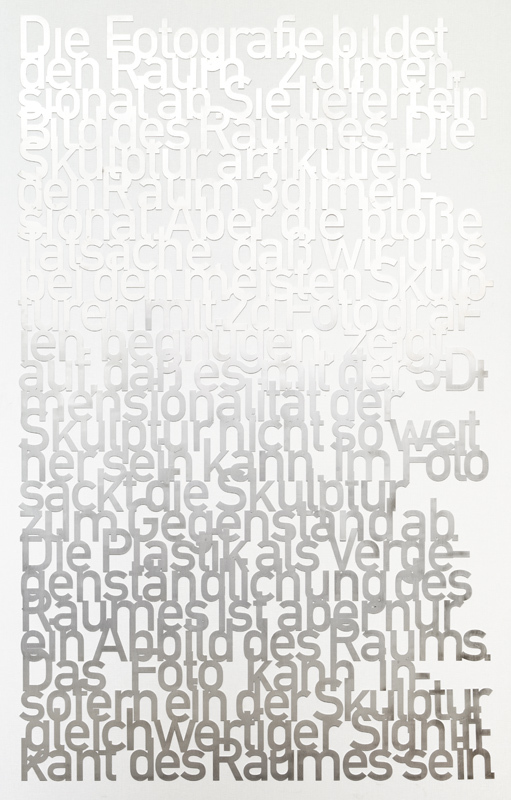 Die Fotografie bildet
den Raum 2dimen-
sional ab. Sie liefert ein
Bild des Raumes. Die
Skulptur artikuliert
den Raum 3dimen-
sional. Aber die bloße
Tatsache, daß wir uns
bei den meisten Skulp-
turen mit 2d Fotograf-
ien, begnügen, zeigt
auf, daß es mit der 3-Di-
mensionalität der
Skulptur nicht so weit
her sein kann. Im Foto
sackt die Skulptur
zum Gegenstand ab.
Die Plastik als Verge-
genständlichung des
Raumes ist aber nur
ein Abbild des Raums.
Das Foto kann in-
sofern ein der Skulptur
gleichwertiger Signifi-
kant des Raumes sein.